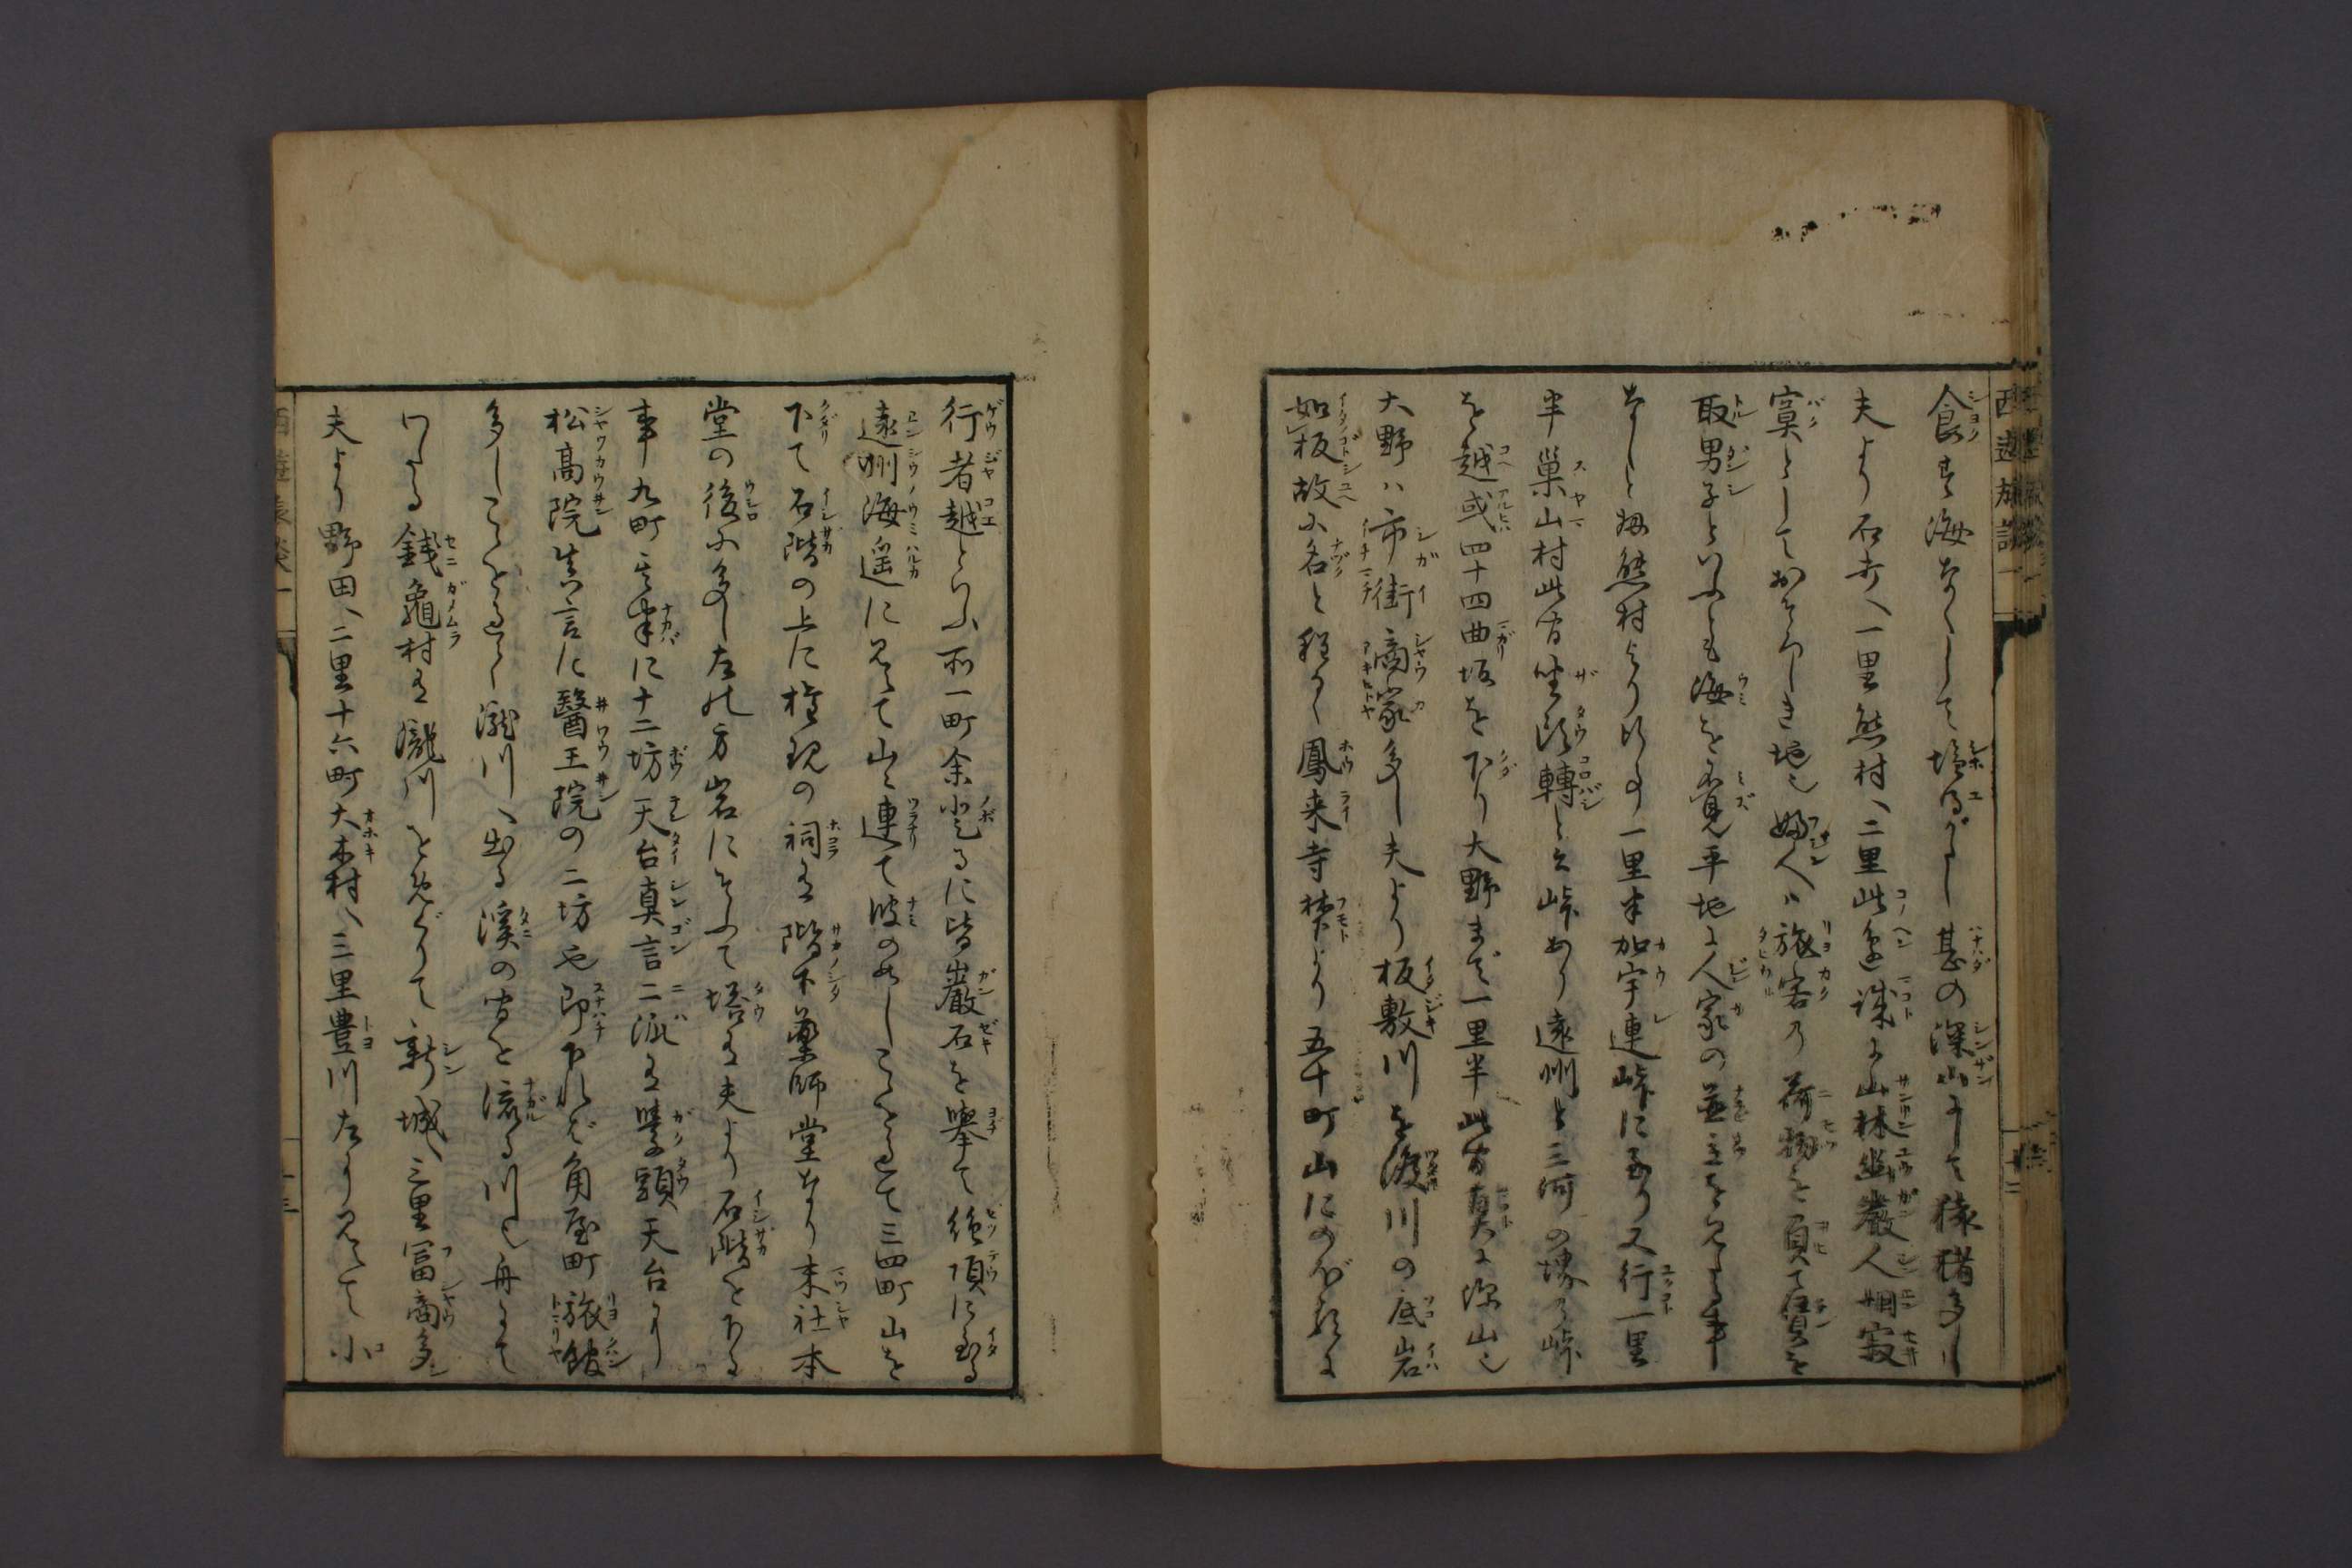 食も海なくして塩得がたし甚の深山にして猿猪多し
夫より石打へ一里熊村へ二里此邊誠に山林幽巌人烟寂
寞としておそろしき地也婦人ハ旅客の荷物を負て賃を
取男子といふとも海を不見平地に人家の並立を見る事
なしと扨熊村より行事一里半加宇連峠に至り又行一里
半巣山村此間坐頭轉と云峠あり遠州と三河の堺の峠
を越或四十四曲坂を下り大野まで一里半此間真に深山也
大野ハ市街商家多し夫より板敷川を渡川の底岩
如板故に名と程なく鳳来寺梺より五十町山にのぼるに
行者越といふ所一町余登るに皆巌石を攀て絶頂に至る
遠州海遥に見へて山々連て波の如しこゝを過て三四町山を
下て石階の上に権現の祠有階下薬師堂なり末社本
堂の後に多し左の方岩にそふて塔有夫より石階を下る
事九町其半に十二坊天台真言二派有学頭天台より
松高院真言に醫王院の二坊也即下れば角屋町旅館
多しこゝを過て瀧川へ出る溪の間を流る川也舟にて
わたる銭亀村有瀧川をめぐりて新城へ三里冨商多シ
夫より野田へ二里十六町大木村へ三里豊川左に見へて小
西遊旅譚一
十二